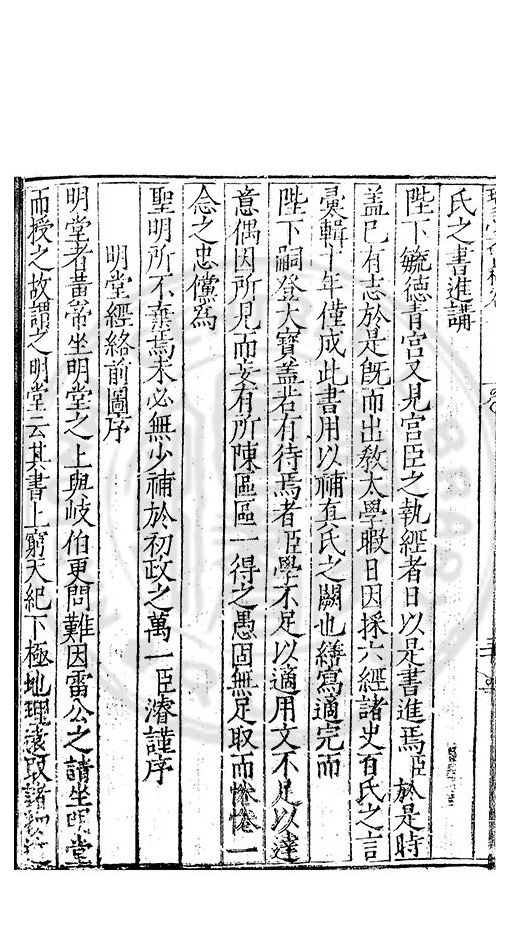 氏之書進講
陛下毓德青宮又見宮臣之執經者日以是書進焉臣於是時
盖已有志於是旣而出教太學暇日因採六經諸史百氏之言
彚輯十年僅成此書用以補真氏之闕也繕寫適完而
陛下嗣登大寶盖若有待焉者臣學不足以適用文不足以達
意偶因所見而妄有所陳區區一得之愚固無足取而惓惓一
念之忠儻為
聖明所不棄焉未必無少補於初政之萬一臣濬謹序
明堂經絡前圖序
明堂者黃帝坐明堂之上與岐伯更問難因雷公之請坐明堂
而授之故謂之明堂云其書上窮天紀下極地理遠取諸